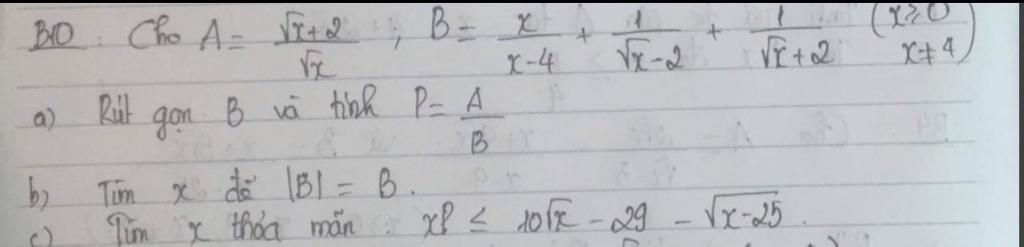 B10: Cho A = (√x+2)/√x ; B = x/(x-4) + 1/(√x-2) + 1/(√x+2) (x≥0 x≠4)
a) Rút gọn B và tính P = A/B
b) Tìm x để |B| = B.
c) Tìm x thỏa mãn: xP ≤ 10√x - 29 - √(x-25).